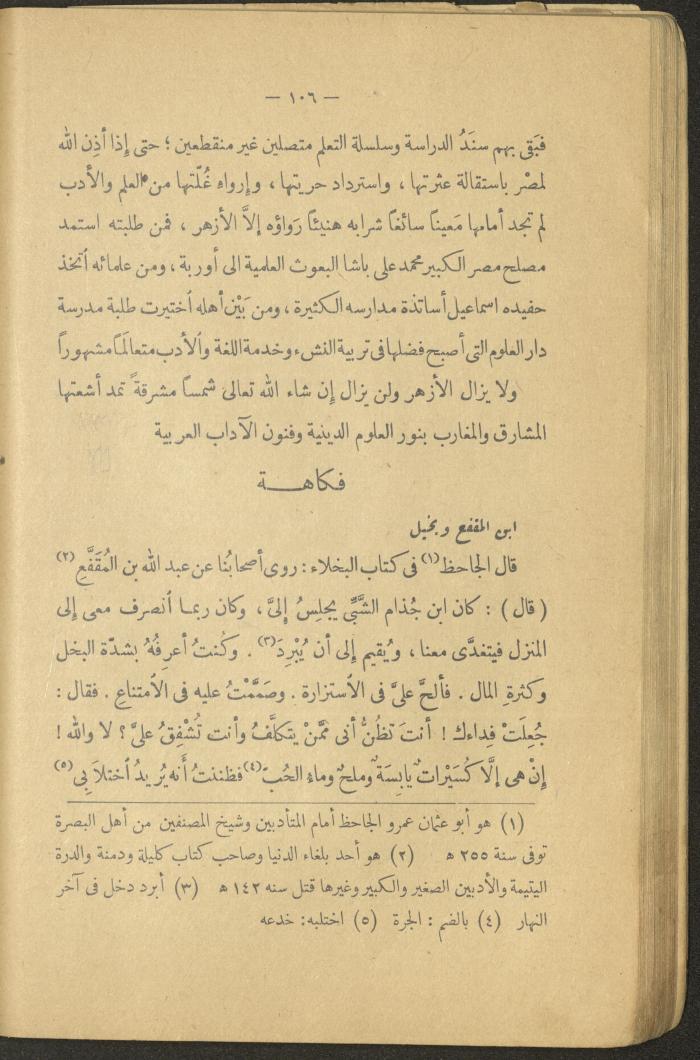 — ١٠٦ —
فبَقى بهم سنَدُ الدراسة وسلسلة التعلم متصلين غير منقطعين ؛ حتى إِذا أذِن الله
لمصْر باستقالة عثرتها ، واسترداد حريتها ، وإرواءِ غُلّتها من العلم والأدب
لم تجد أمامها مَعيناً سائغاً شرابه هنيئاً رَواؤه إِلاَّ الأزهر ، فمن طلبته استمد
مصلح مصر الكبير محمد على باشا البعوث العلمية الى أوربة ، ومن علمائه اتخذ
حفيده اسماعيل أساتذة مدارسه الكثيرة ، ومن بَيْن أهله اُختيرت طلبة مدرسة
دار العلوم التى أصبح فضلها فى تربية النشء وخدمة اللغة واُلأدب متعالَماً مشهوراً
ولا يزال الأزهر ولن يزال إِن شاء الله تعالى شمساً مشرقةً تمد أشعتها
المشارق والمغارب بنور العلوم الدينية وفنون الآداب العربية
فكاهة
ابن المقفع وبخيل
قال الجاحظ (١) فى كتاب البخلاء : روى أصحابُنا عن عبد الله بن المُقَفَّعِ (٢)
( قال ) : كان ابن جُذام الشَّبِّي يجلِسُ إِلىَّ ، وكان ربما اُنصرف معى إِلى
المنزل فيتغدَّى معنا ، ويُقيم إِلى أن يُبْرِدَ (٣) . وكُنتُ أعرِفُهُ بشدّة البخل
وكثرةِ المال . فألحَّ علىَّ فى الاُستزارة . وصَمَّمْتُ عليه فى الاُمتناعِ . فقال :
جُعِلَتْ فِداءك ! أنتَ تظُنُّ أنى مَمَّنْ يتكلَّفُ وأنت تُشْفِقُ علىَّ ؟ لا والله !
إِنْ هى إِلَّا كُسَيْرات يابِسَة وملحٌ وماءِ الحُبّ (٤) فظننتُ أَنه يُريدُ اُختلاَبِى (٥)
(١) هو أبو عثمان عمرو الجاحظ أمام المتأدبين وشيخ المصنفين من أهل البصرة
توفى سنة ٢٥٥ ه (٢) هو أحد بلغاء الدنيا وصاحب كتاب كليلة ودمنة والدرة
اليتيمة والأدبين الصغير والكبير وغيرها قتل سنه ١٤٢ ه (٣) أبرد دخل فى آخر
النهار (٤) بالضم : الجرة (٥) اختلبه : خدعه